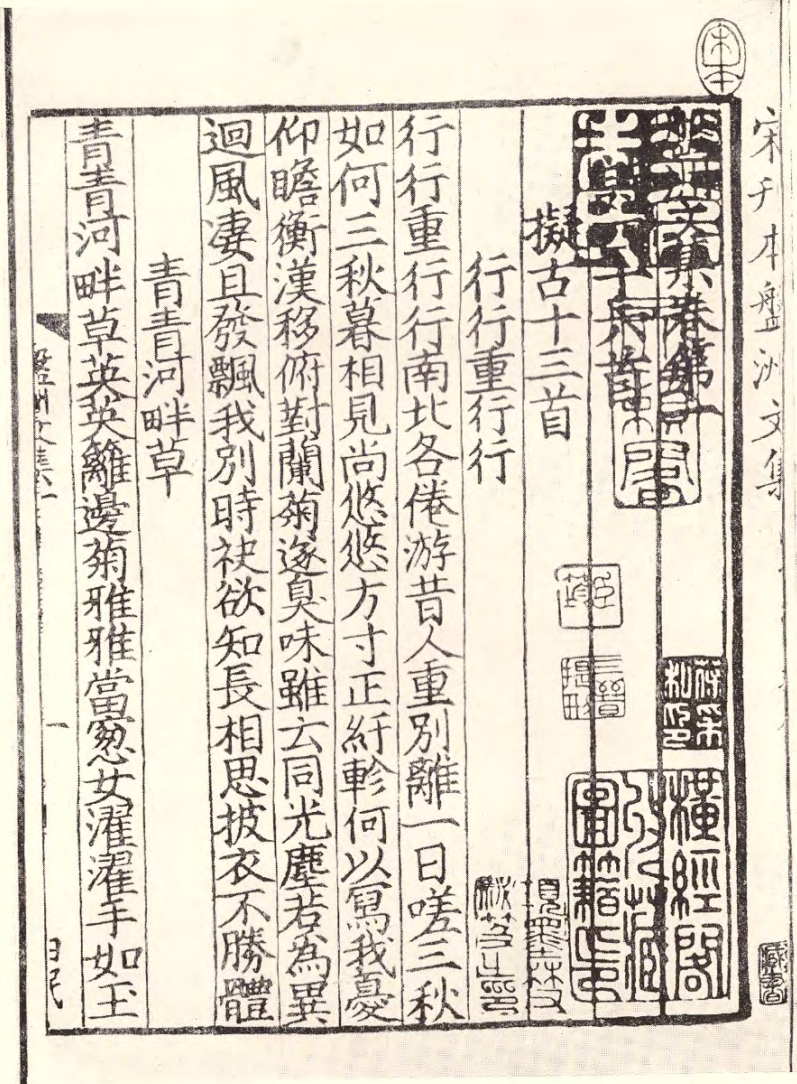 宋本
宋刊本盤洲文集
文集卷第一
橫經閣收藏圖籍印
擬古十三首
項墨林父祕笈之印
行行重行行
行行重行行南北各倦游昔人重別離一日嗟三秋
如何三秋暮相見尚悠悠方寸正紆軫何以寫我憂
仰瞻衡漢移俯對蘭菊遂臭味雖云同光塵若為異
迴風淒且發飄我別時袂欲知長相思披衣不勝體
青青河畔草
青青河畔草英英籬邊菊雅雅當窻女濯濯手如玉
盤洲文集一
一